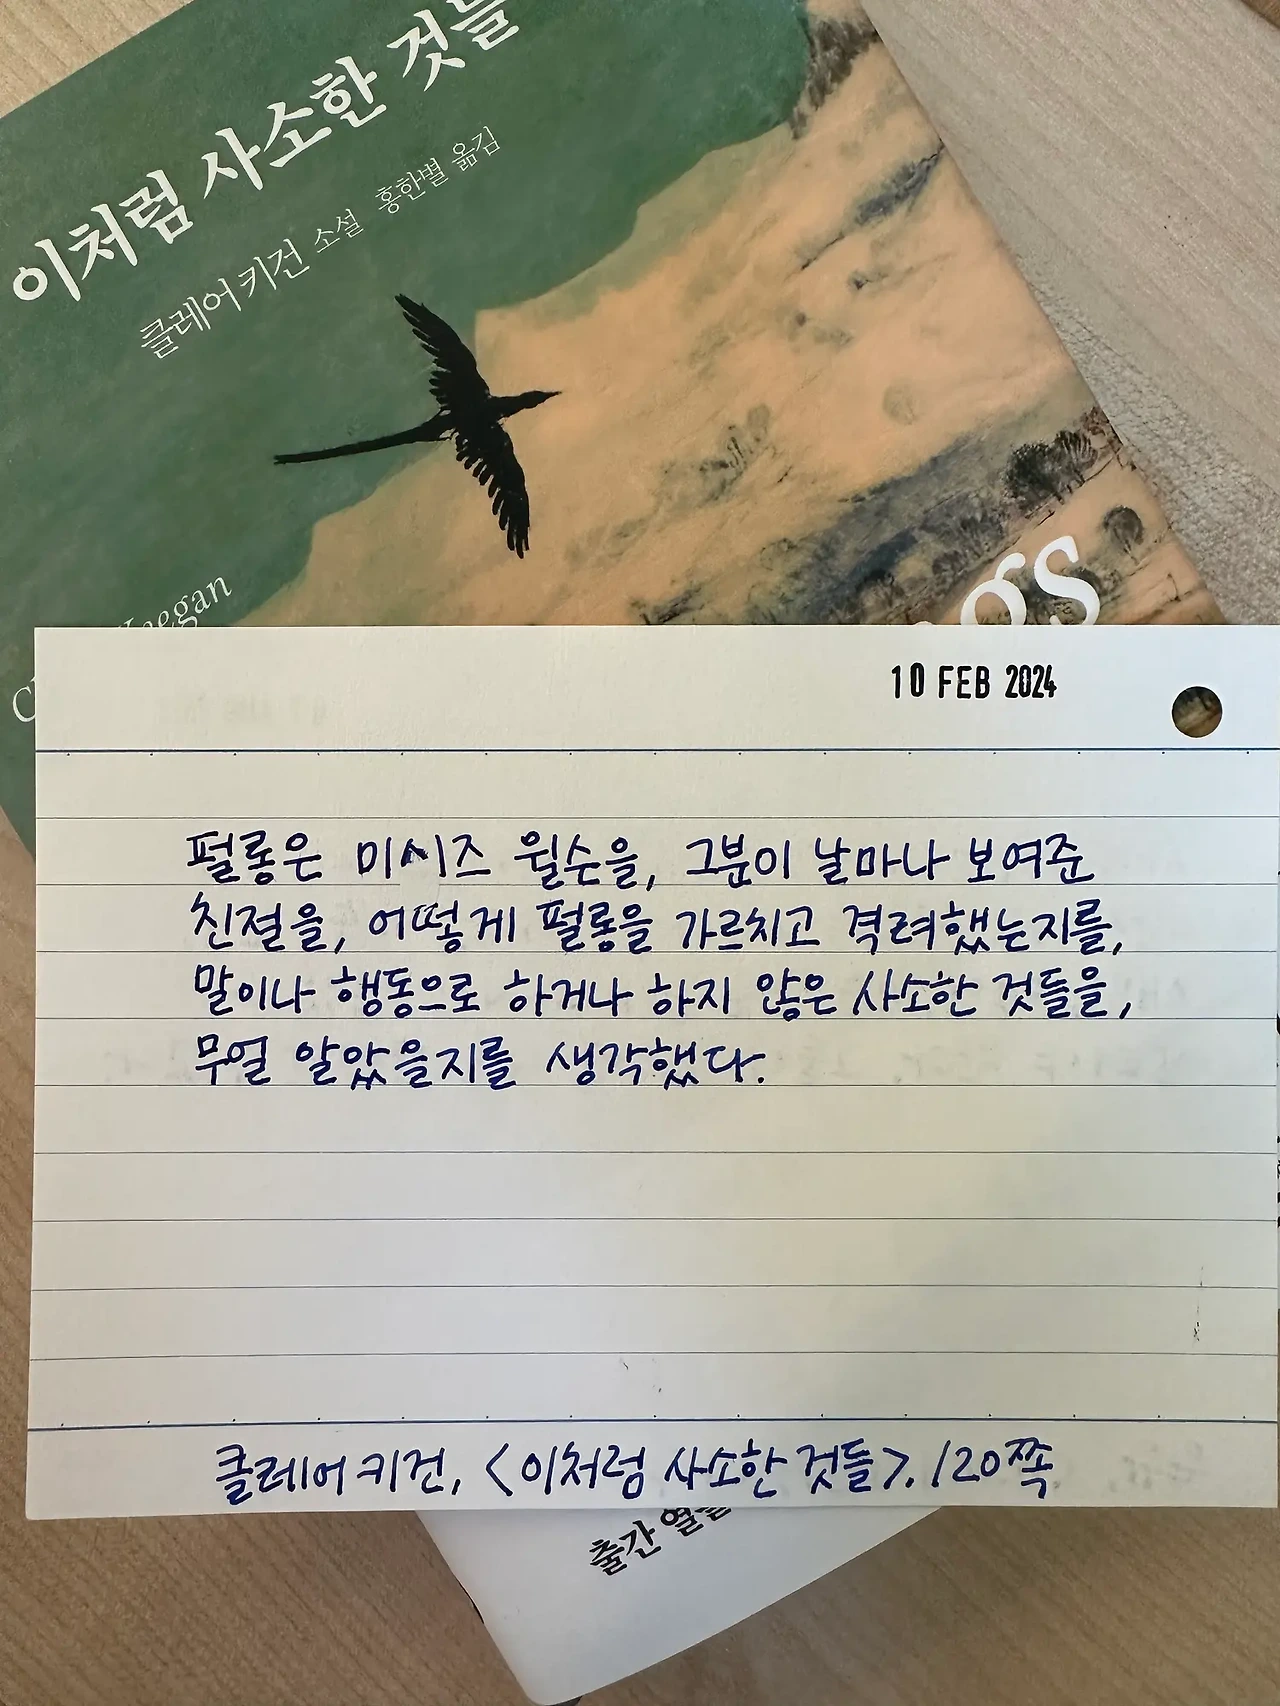 이처럼 사소한 것들
클레어 키건 소설 홍한별 옮김
Keegan
gs
10 FEB 2024
펄롱은 미시즈 윌슨을, 그분이 날마나 보여준
친절을, 어떻게 펄롱을 가르치고 격려했는지를,
말이나 행동으로 하거나 하지 않은 사소한 것들을,
무얼 알았을지를 생각했다.
클레어 키건, <이처럼 사소한 것들>, 120쪽
출간